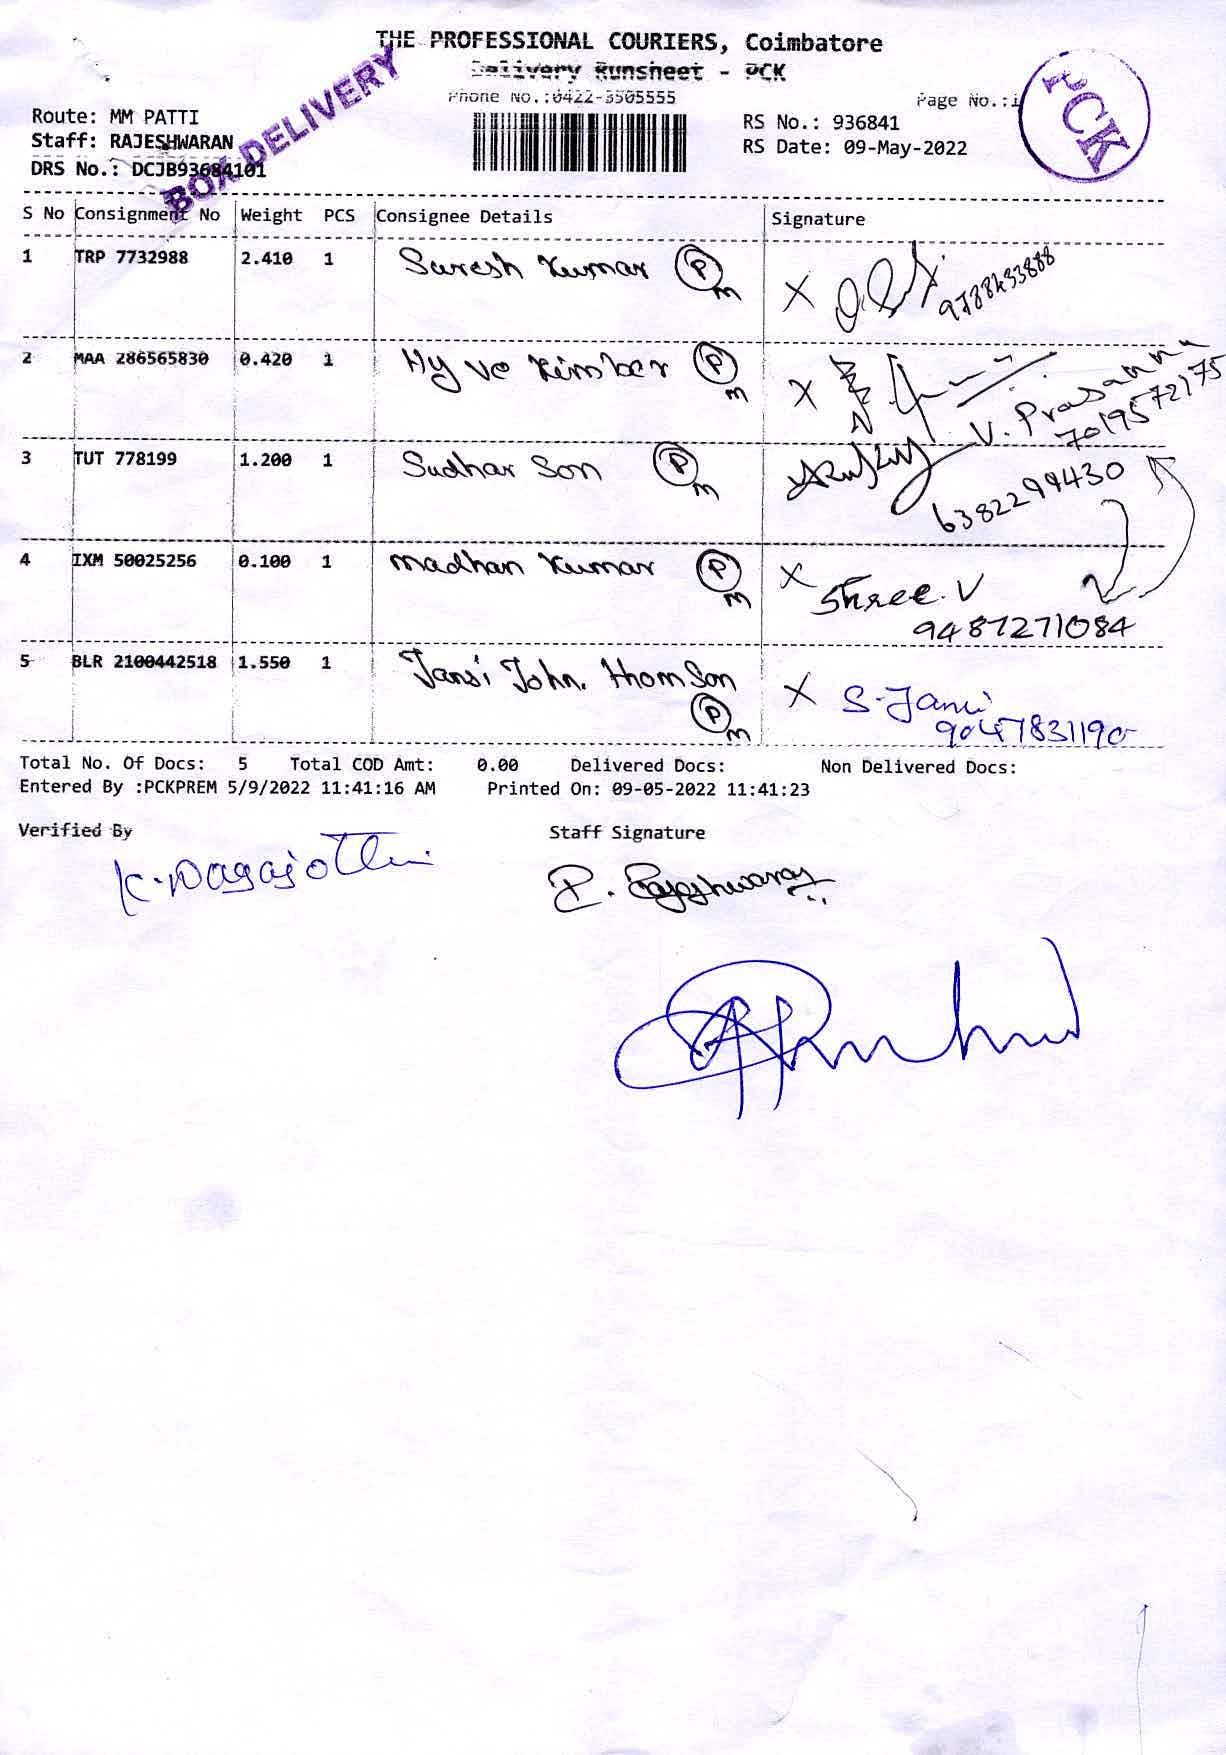 THE PROFESSIONAL COURIERS, Coimbatore
Delivery Runsheet - PCK
Phone No.:0422-3505555
Page No.:1
PCK
BOX DELIVERY
Route: MM PATTI
Staff: RAJESHWARAN
DRS No.: DCJB93684101
RS No.: 936841
RS Date: 09-May-2022
S No Consignment No Weight PCS Consignee Details Signature
1 TRP 7732988 2.410 1 Suresh Kumar P m X
9788433888
2 MAA 286565830 0.420 1 Hy ve Kimber P m X
V. Prasanna
7019572175
3 TUT 778199 1.200 1 Sudhar Son P m
6382299430
4 IXM 50025256 0.100 1 madhan Kumar P m X Shree. V
9487271084
5 BLR 2100442518 1.550 1 Jansi John. thomson P m X S. Jansi
9047831190
Total No. Of Docs: 5 Total COD Amt: 0.00 Delivered Docs: Non Delivered Docs:
Entered By :PCKPREM 5/9/2022 11:41:16 AM Printed On: 09-05-2022 11:41:23
Verified By Staff Signature
P. Rajeshwaran